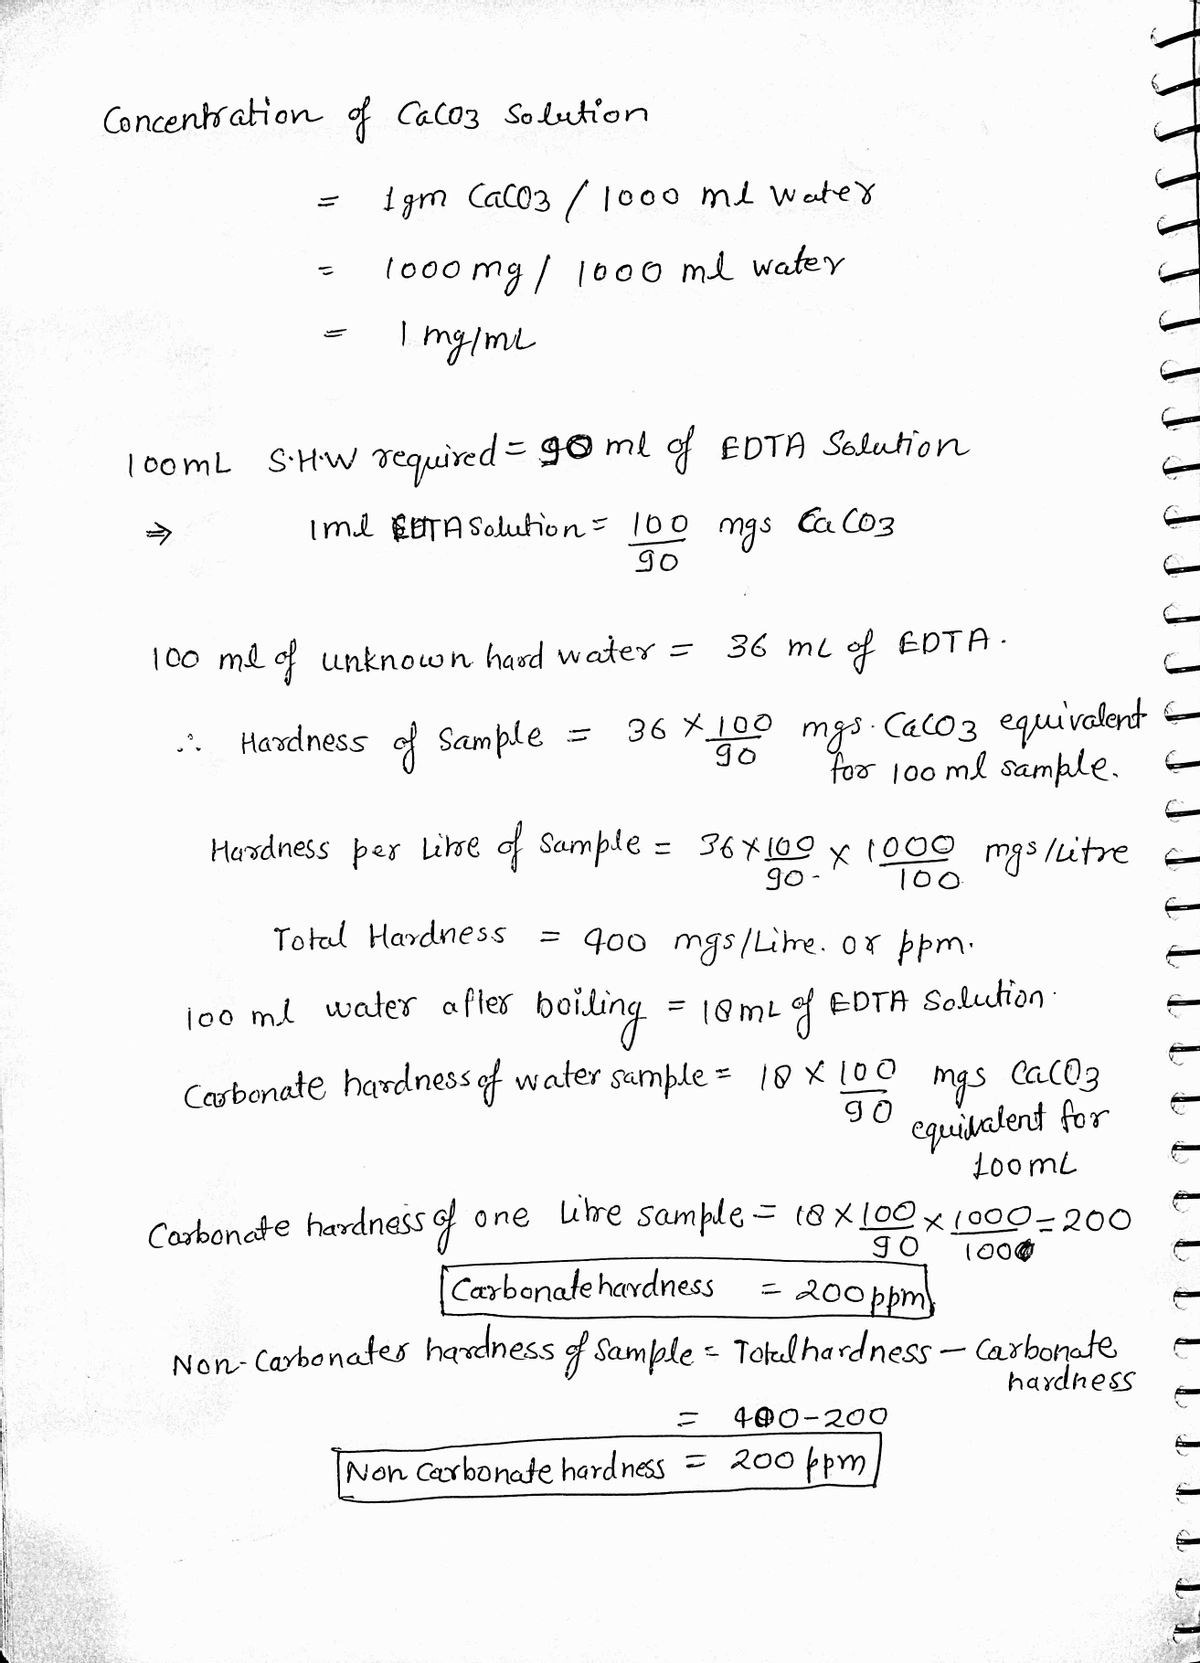 Concentration of CaCO3 Solution
= 1gm CaCO3 / 1000 ml water
= 1000 mg / 1000 ml water
= 1 mg/mL
100mL S.H.W required = 90 ml of EDTA Solution
⇒ 1ml EDTA Solution = 100/90 mgs CaCO3
100 ml of unknown hard water = 36 mL of EDTA.
∴ Hardness of Sample = 36 × 100/90 mgs. CaCO3 equivalent
for 100 ml sample.
Hardness per Litre of Sample = 36 × 100/90 × 1000/100 mgs/Litre
Total Hardness = 400 mgs/Litre. or ppm.
100 ml water after boiling = 18 mL of EDTA Solution.
Carbonate hardness of water sample = 18 × 100/90 mgs CaCO3
equivalent for
100mL
Carbonate hardness of one Litre sample = 18 × 100/90 × 1000/100 = 200
Carbonate hardness = 200 ppm
Non-Carbonates hardness of Sample = Total hardness - Carbonate
hardness
= 400-200
Non Carbonate hardness = 200 ppm